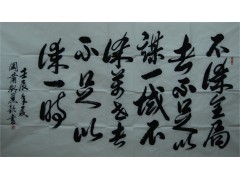 不谋全局
者不足
谋一域不
谋万世者
不足以
谋一时
壬辰年